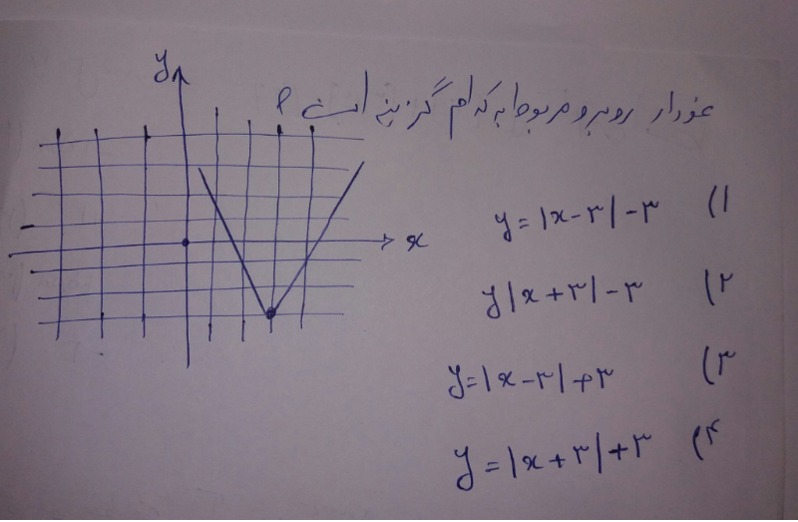 نمودار روبرو مربوط به کدام گزینه است ؟
y
x
۱) y = |x - ۳| - ۳
۲) y |x + ۳| - ۳
۳) y = |x - ۳| + ۳
۴) y = |x + ۳| + ۳